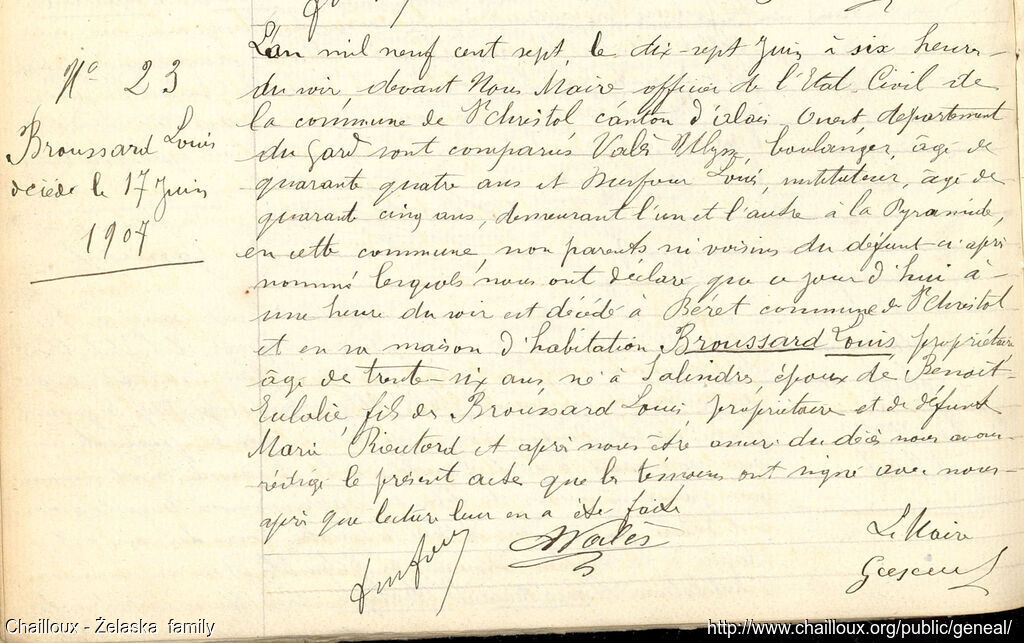 N° 23
Broussard Louis
décédé le 17 Juin
1907
L'an mil neuf cent sept, le dix-sept Juin à six heures
du soir, devant Nous Maire officier de l'Etat Civil de
la commune de St Christol canton d'Alais Ouest, département
du Gard sont comparus Valès Ulysse, boulanger, âgé de
quarante quatre ans et Louis, instituteur, âgé de
quarante cinq ans, demeurant l'un et l'autre à la Pyramide,
en cette commune, non parents ni voisins du défunt ci après
nommé lesquels nous ont déclaré que ce jour d'hui à
une heure du soir est décédé à Béret commune de St Christol
et en sa maison d'habitation Broussard Louis, propriétaire
âgé de trente-six ans, né à Salindres, époux de Benoît
Eulalie, fils de Broussard Louis propriétaire et de défunte
Marie Rieutord et après nous être assuré du décès nous avons
rédigé le présent acte que les témoins ont signé avec nous
après que lecture leur en a été faite
AValès
Le Maire
Chailloux - Żelaska family
http://www.chailloux.org/public/geneal/